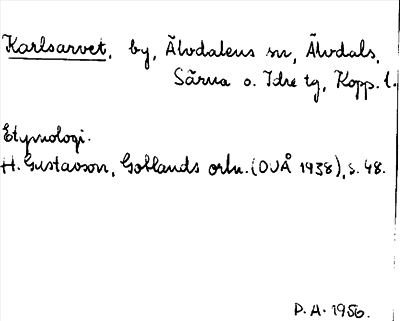 Karlsarvet, by, Älvdalens sn, Älvdals,
Särna o. Idre tg, Kopp. l.
Etymologi.
H. Gustavson, Gotlands ortn. (OUÅ 1938), s. 48.
P. H. 1956.